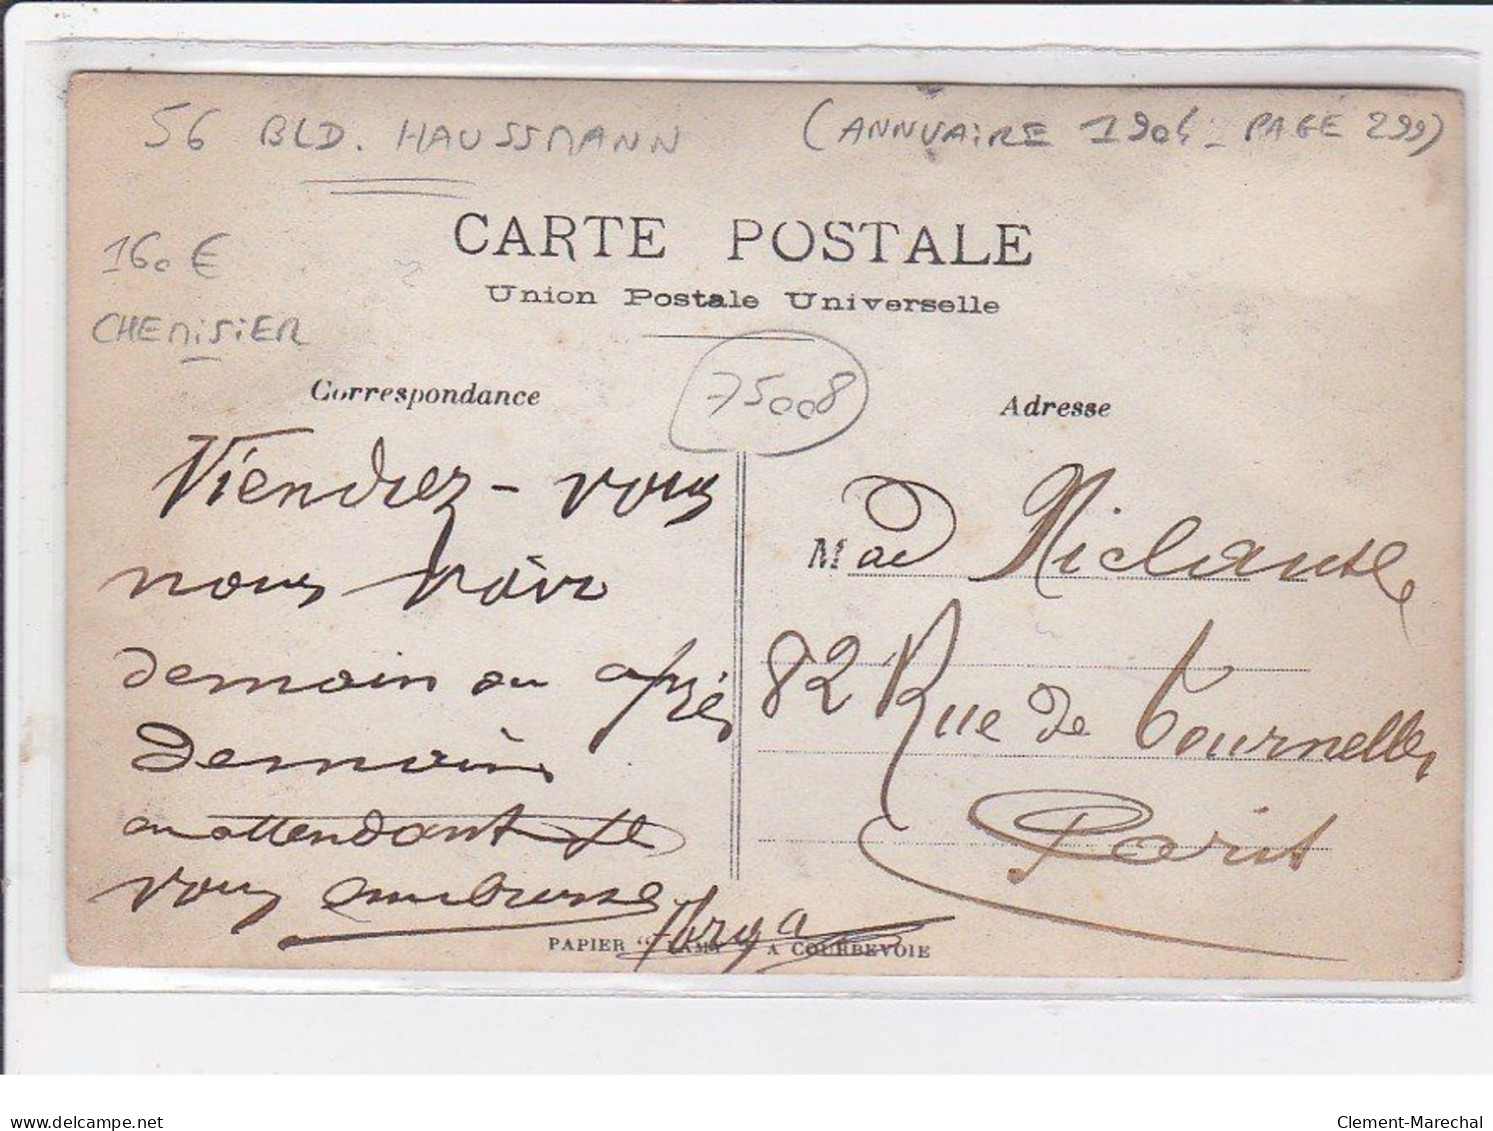 56 BLD. HAUSSMANN (ANNUAIRE 1904 - PAGE 299)
160€
CHEMISIER
CARTE POSTALE
Union Postale Universelle
75008
Correspondance
Adresse
Viendrez-vous
nous voir
demain ou après
demain
en attendant je
vous embrasse
Marga
Mad Niclausse
82 Rue de Tournelles
Paris
PAPIER "LAMY" A COURBEVOIE
delcampe.net
Clement-Marechal